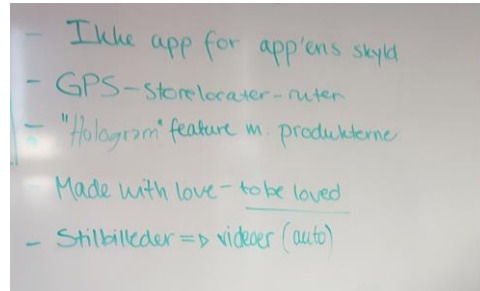 - Ikke app for app'ens skyld
- GPS-storelocater-ruten
- "Hologram" feature m. produkterne
- Made with love - to be loved
- Stilbilleder => videoer (auto)